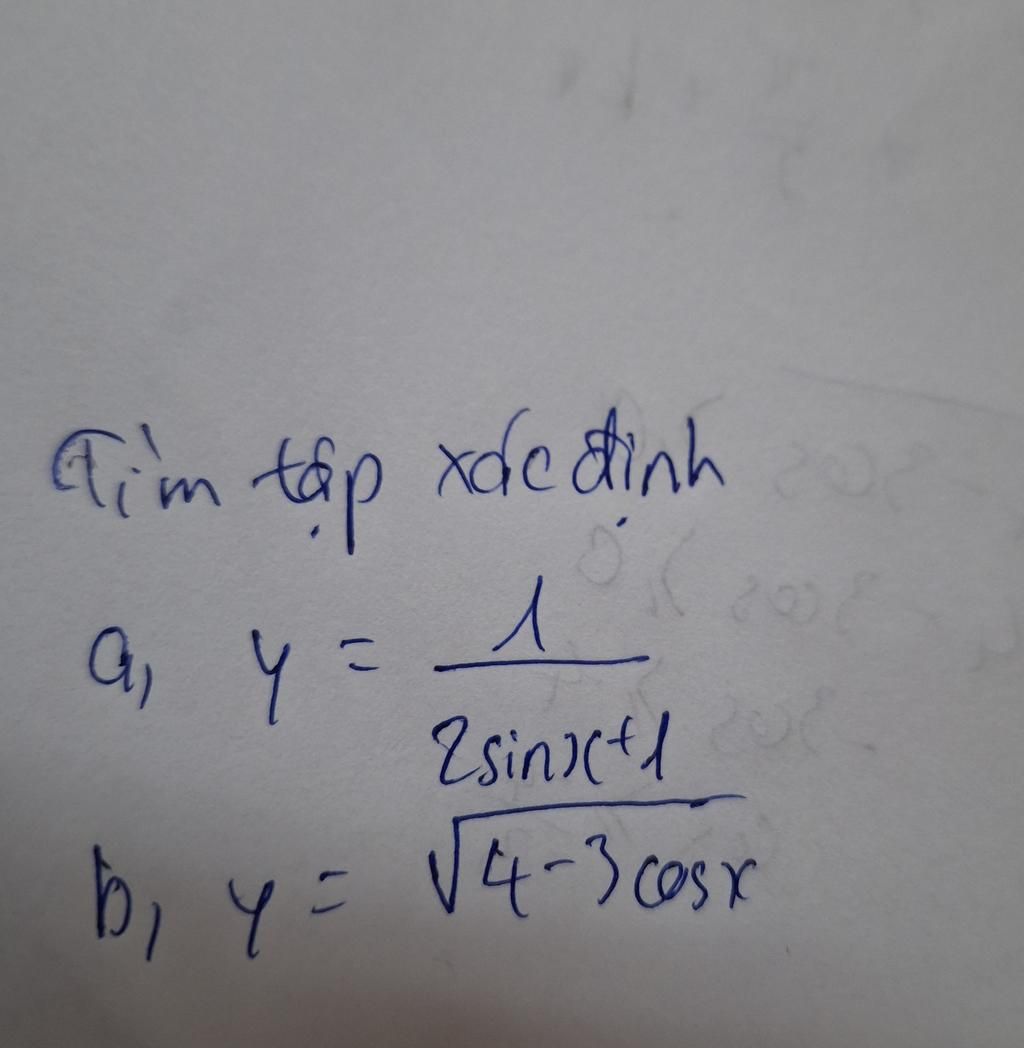 Tìm tập xác định
a, y = 1/(2sinx+1)
b, y = √(4-3cosx)